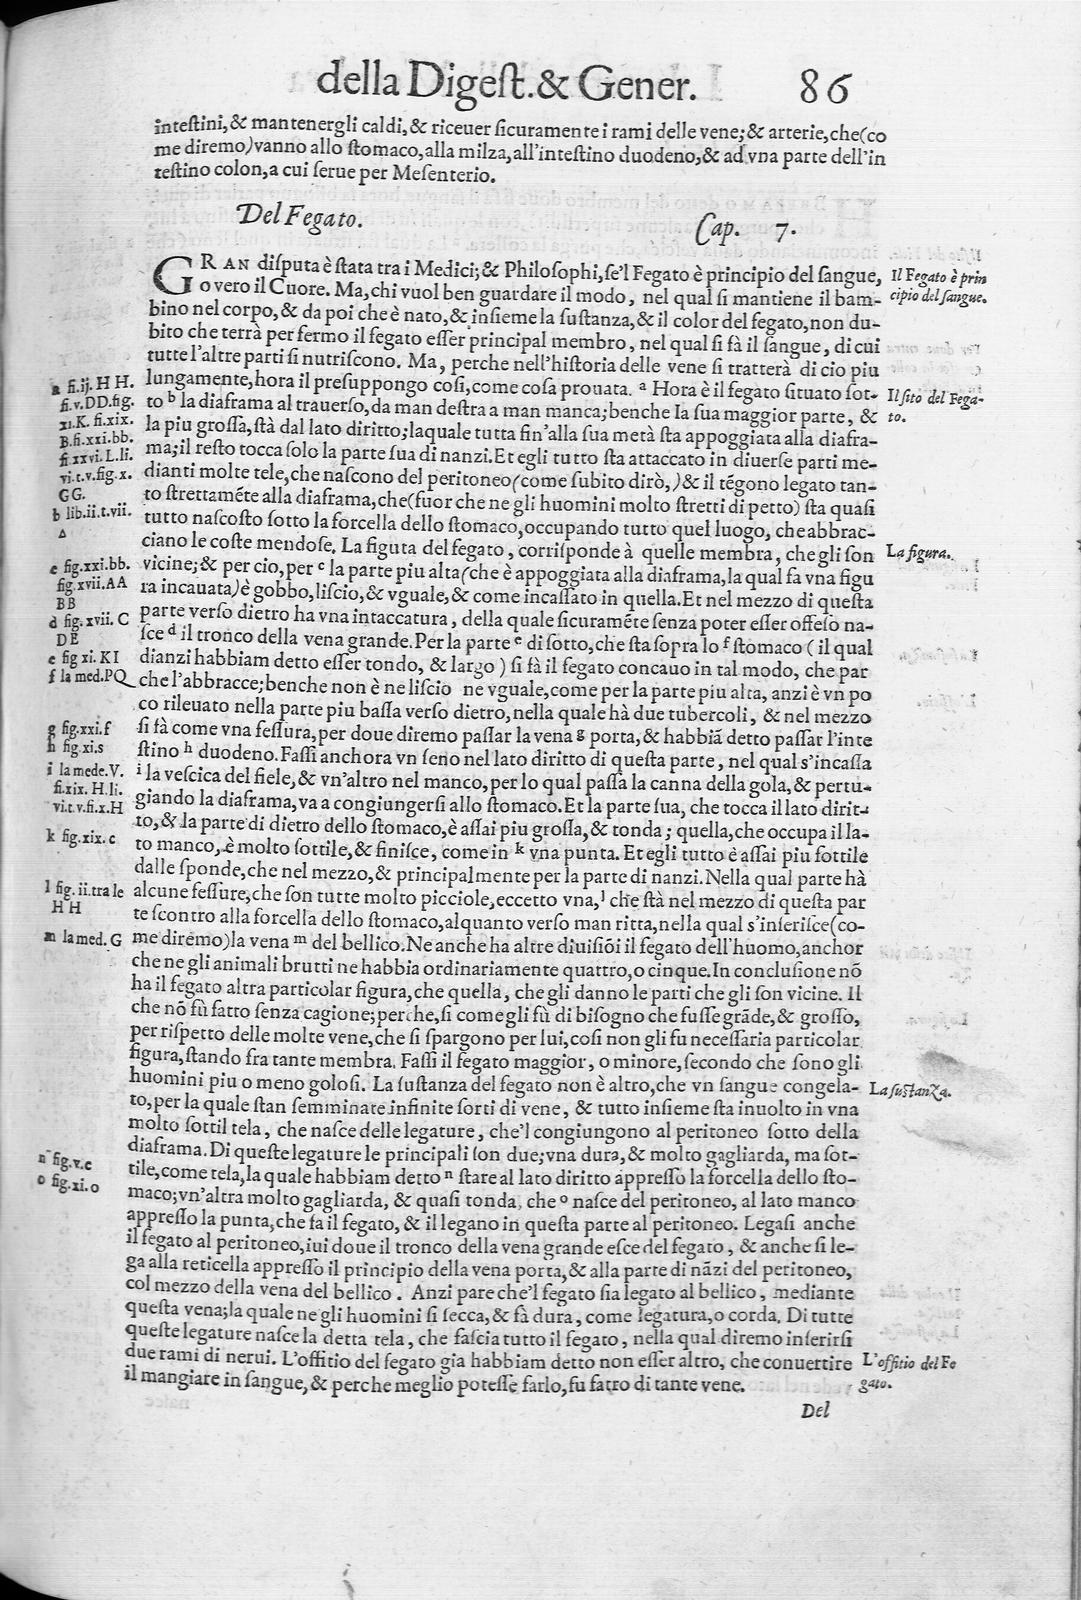 della Digeſt. & Gener. 86
inteſtini, & mantenergli caldi, & riceuer ſicuramente i rami delle vene; & arterie, che (co
me diremo) vanno allo ſtomaco, alla milza, all'inteſtino duodeno, & ad vna parte dell'in
teſtino colon, a cui ſerue per Meſenterio.
Del Fegato. Cap. 7.
GRAN diſputa è ſtata tra i Medici; & Philoſophi, ſe'l Fegato è principio del ſangue,
Il Fegato è prin
o vero il Cuore. Ma, chi vuol ben guardare il modo, nel qual ſi mantiene il bam-
cipio del ſangue.
bino nel corpo, & da poi che è nato, & inſieme la ſuſtanza, & il color del fegato, non du-
bito che terrà per fermo il fegato eſſer principal membro, nel qual ſi fà il ſangue, di cui
tutte l'altre parti ſi nutriſcono. Ma, perche nell'hiſtoria delle vene ſi tratterà di cio piu
a fi.ij. H H.
lungamente, hora il preſuppongo coſi, come coſa prouata. a Hora è il fegato ſituato ſot-
Il ſito del Fega-
fi.v. DD. fig.
to b la diaframa al trauerſo, da man deſtra a man manca; benche la ſua maggior parte, &
to.
xi. K. fi. xix.
la piu groſſa, ſtà dal lato diritto; laquale tutta fin'alla ſua metà ſta appoggiata alla diafra-
B. fi. xxi. bb.
ma; il reſto tocca ſolo la parte ſua di nanzi. Et egli tutto ſta attaccato in diuerſe parti me-
fi xxvi. L. li.
vi. t. v. fig. x.
dianti molte tele, che naſcono del peritoneo (come ſubito dirò,) & il tēgono legato tan-
GG.
to ſtrettamēte alla diaframa, che (fuor che ne gli huomini molto ſtretti di petto) ſta quaſi
b lib. ii. t. vii.
tutto naſcoſto ſotto la forcella dello ſtomaco, occupando tutto quel luogo, che abbrac-
Δ
ciano le coſte mendoſe. La figuta del fegato, corriſponde à quelle membra, che gli ſon
La figura.
c fig. xxi. bb.
vicine; & per cio, per c la parte piu alta (che è appoggiata alla diaframa, la qual fa vna figu
fig. xvii. AA
ra incauata) è gobbo, liſcio, & vguale, & come incaſſato in quella. Et nel mezzo di queſta
BB
parte verſo dietro ha vna intaccatura, della quale ſicuramēte ſenza poter eſſer offeſo na-
d fig. xvii. C
DE
ſce d il tronco della vena grande. Per la parte e di ſotto, che ſta ſopra lo f ſtomaco (il qual
e fig xi. KI
dianzi habbiam detto eſſer tondo, & largo) ſi fà il fegato concauo in tal modo, che par
f la med. PQ
che l'abbracce; benche non è ne liſcio ne vguale, come per la parte piu alta, anzi è vn po
co rileuato nella parte piu baſſa verſo dietro, nella quale hà due tubercoli, & nel mezzo
g fig. xxi. f
ſi fà come vna feſſura, per doue diremo paſſar la vena g porta, & habbiā detto paſſar l'inte
h fig. xi. s
ſtino h duodeno. Faſſi anchora vn ſeno nel lato diritto di queſta parte, nel qual s'incaſſa
i la mede. V.
i la veſcica del fiele, & vn'altro nel manco, per lo qual paſſa la canna della gola, & pertu-
fi. xix. H. li.
giando la diaframa, va a congiungerſi allo ſtomaco. Et la parte ſua, che tocca il lato dirit-
vi. t. v. fi. x. H
to, & la parte di dietro dello ſtomaco, è aſſai piu groſſa, & tonda; quella, che occupa il la-
k fig. xix. c
to manco, è molto ſottile, & finiſce, come in k vna punta. Et egli tutto è aſſai piu ſottile
dalle ſponde, che nel mezzo, & principalmente per la parte di nanzi. Nella qual parte hà
l fig. ii. tra le
alcune feſſure, che ſon tutte molto picciole, eccetto vna, l che ſtà nel mezzo di queſta par
HH
te ſcontro alla forcella dello ſtomaco, alquanto verſo man ritta, nella qual s'inſeriſce (co-
m la med. G
me diremo) la vena m del bellico. Ne anche ha altre diuiſiōi il fegato dell'huomo, anchor
che ne gli animali brutti ne habbia ordinariamente quattro, o cinque. In concluſione nō
ha il fegato altra particolar figura, che quella, che gli danno le parti che gli ſon vicine. Il
che nō fù fatto ſenza cagione; perche, ſi come gli fù di biſogno che fuſſe grāde, & groſſo,
per riſpetto delle molte vene, che ſi ſpargono per lui, coſi non gli fu neceſſaria particolar
figura, ſtando fra tante membra. Faſſi il fegato maggior, o minore, ſecondo che ſono gli
huomini piu o meno goloſi. La ſuſtanza del fegato non è altro, che vn ſangue congela-
La ſuſtanza.
to, per la quale ſtan ſemminate infinite ſorti di vene, & tutto inſieme ſta inuolto in vna
molto ſottil tela, che naſce delle legature, che'l congiungono al peritoneo ſotto della
diaframa. Di queſte legature le principali ſon due; vna dura, & molto gagliarda, ma ſot-
n fig. v. c
tile, come tela, la quale habbiam detto n ſtare al lato diritto appreſſo la forcella dello ſto-
o fig. xi. o
maco; vn'altra molto gagliarda, & quaſi tonda, che o naſce del peritoneo, al lato manco
appreſſo la punta, che fa il fegato, & il legano in queſta parte al peritoneo. Legaſi anche
il fegato al peritoneo, iui doue il tronco della vena grande eſce del fegato, & anche ſi le-
ga alla reticella appreſſo il principio della vena porta, & alla parte di nāzi del peritoneo,
col mezzo della vena del bellico. Anzi pare che'l fegato ſia legato al bellico, mediante
queſta vena; la quale ne gli huomini ſi ſecca, & fà dura, come legatura, o corda. Di tutte
queſte legature naſce la detta tela, che faſcia tutto il fegato, nella qual diremo inſerirſi
due rami di nerui. L'offitio del fegato gia habbiam detto non eſſer altro, che conuertire
L'offitio del Fe
il mangiare in ſangue, & perche meglio poteſſe farlo, fu fatto di tante vene.
gato.
Del